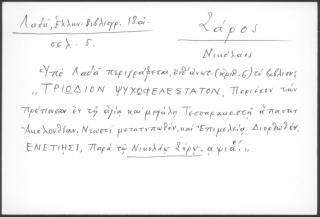 Λαδᾶ, Ἑλλην. Βιβλιογρ. 18αι.
σελ. 5.
Σάρος
Νικόλαος
Ὑπὸ Λαδᾶ περιγράφεται, ὑπ' (ἀριθ. 6) τὸ βιβλίον,
"ΤΡΙΩΔΙΟΝ ΨΥΧΟΦΕΛΕΣΤΑΤΟΝ, Περιέχον τὴν
πρέπουσαν ἐν τῇ ἁγίᾳ καὶ μεγάλῃ Τεσσαρακοστῇ ἅπασαν
Ἀκολουθίαν. Νεωστὶ μετατυπωθέν, καὶ Ἐπιμελείᾳ Διορθωθέν.
ΕΝΕΤΙΗΣΙ, Παρὰ τῷ Νικολάῳ Σάρῳ. αψια΄."